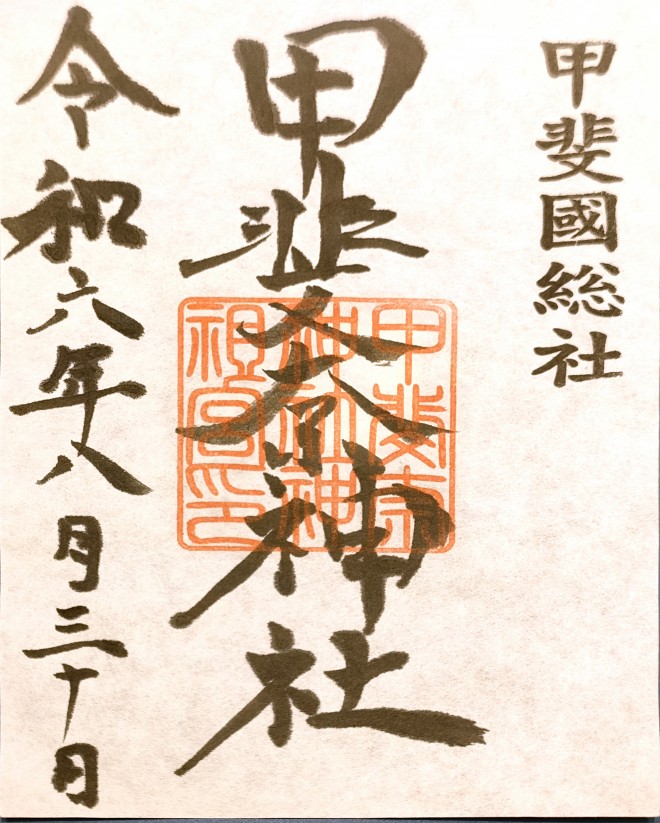 甲斐國総社
甲斐奈神社
甲斐奈
神社神
祖宮印
令和六年八月三十日